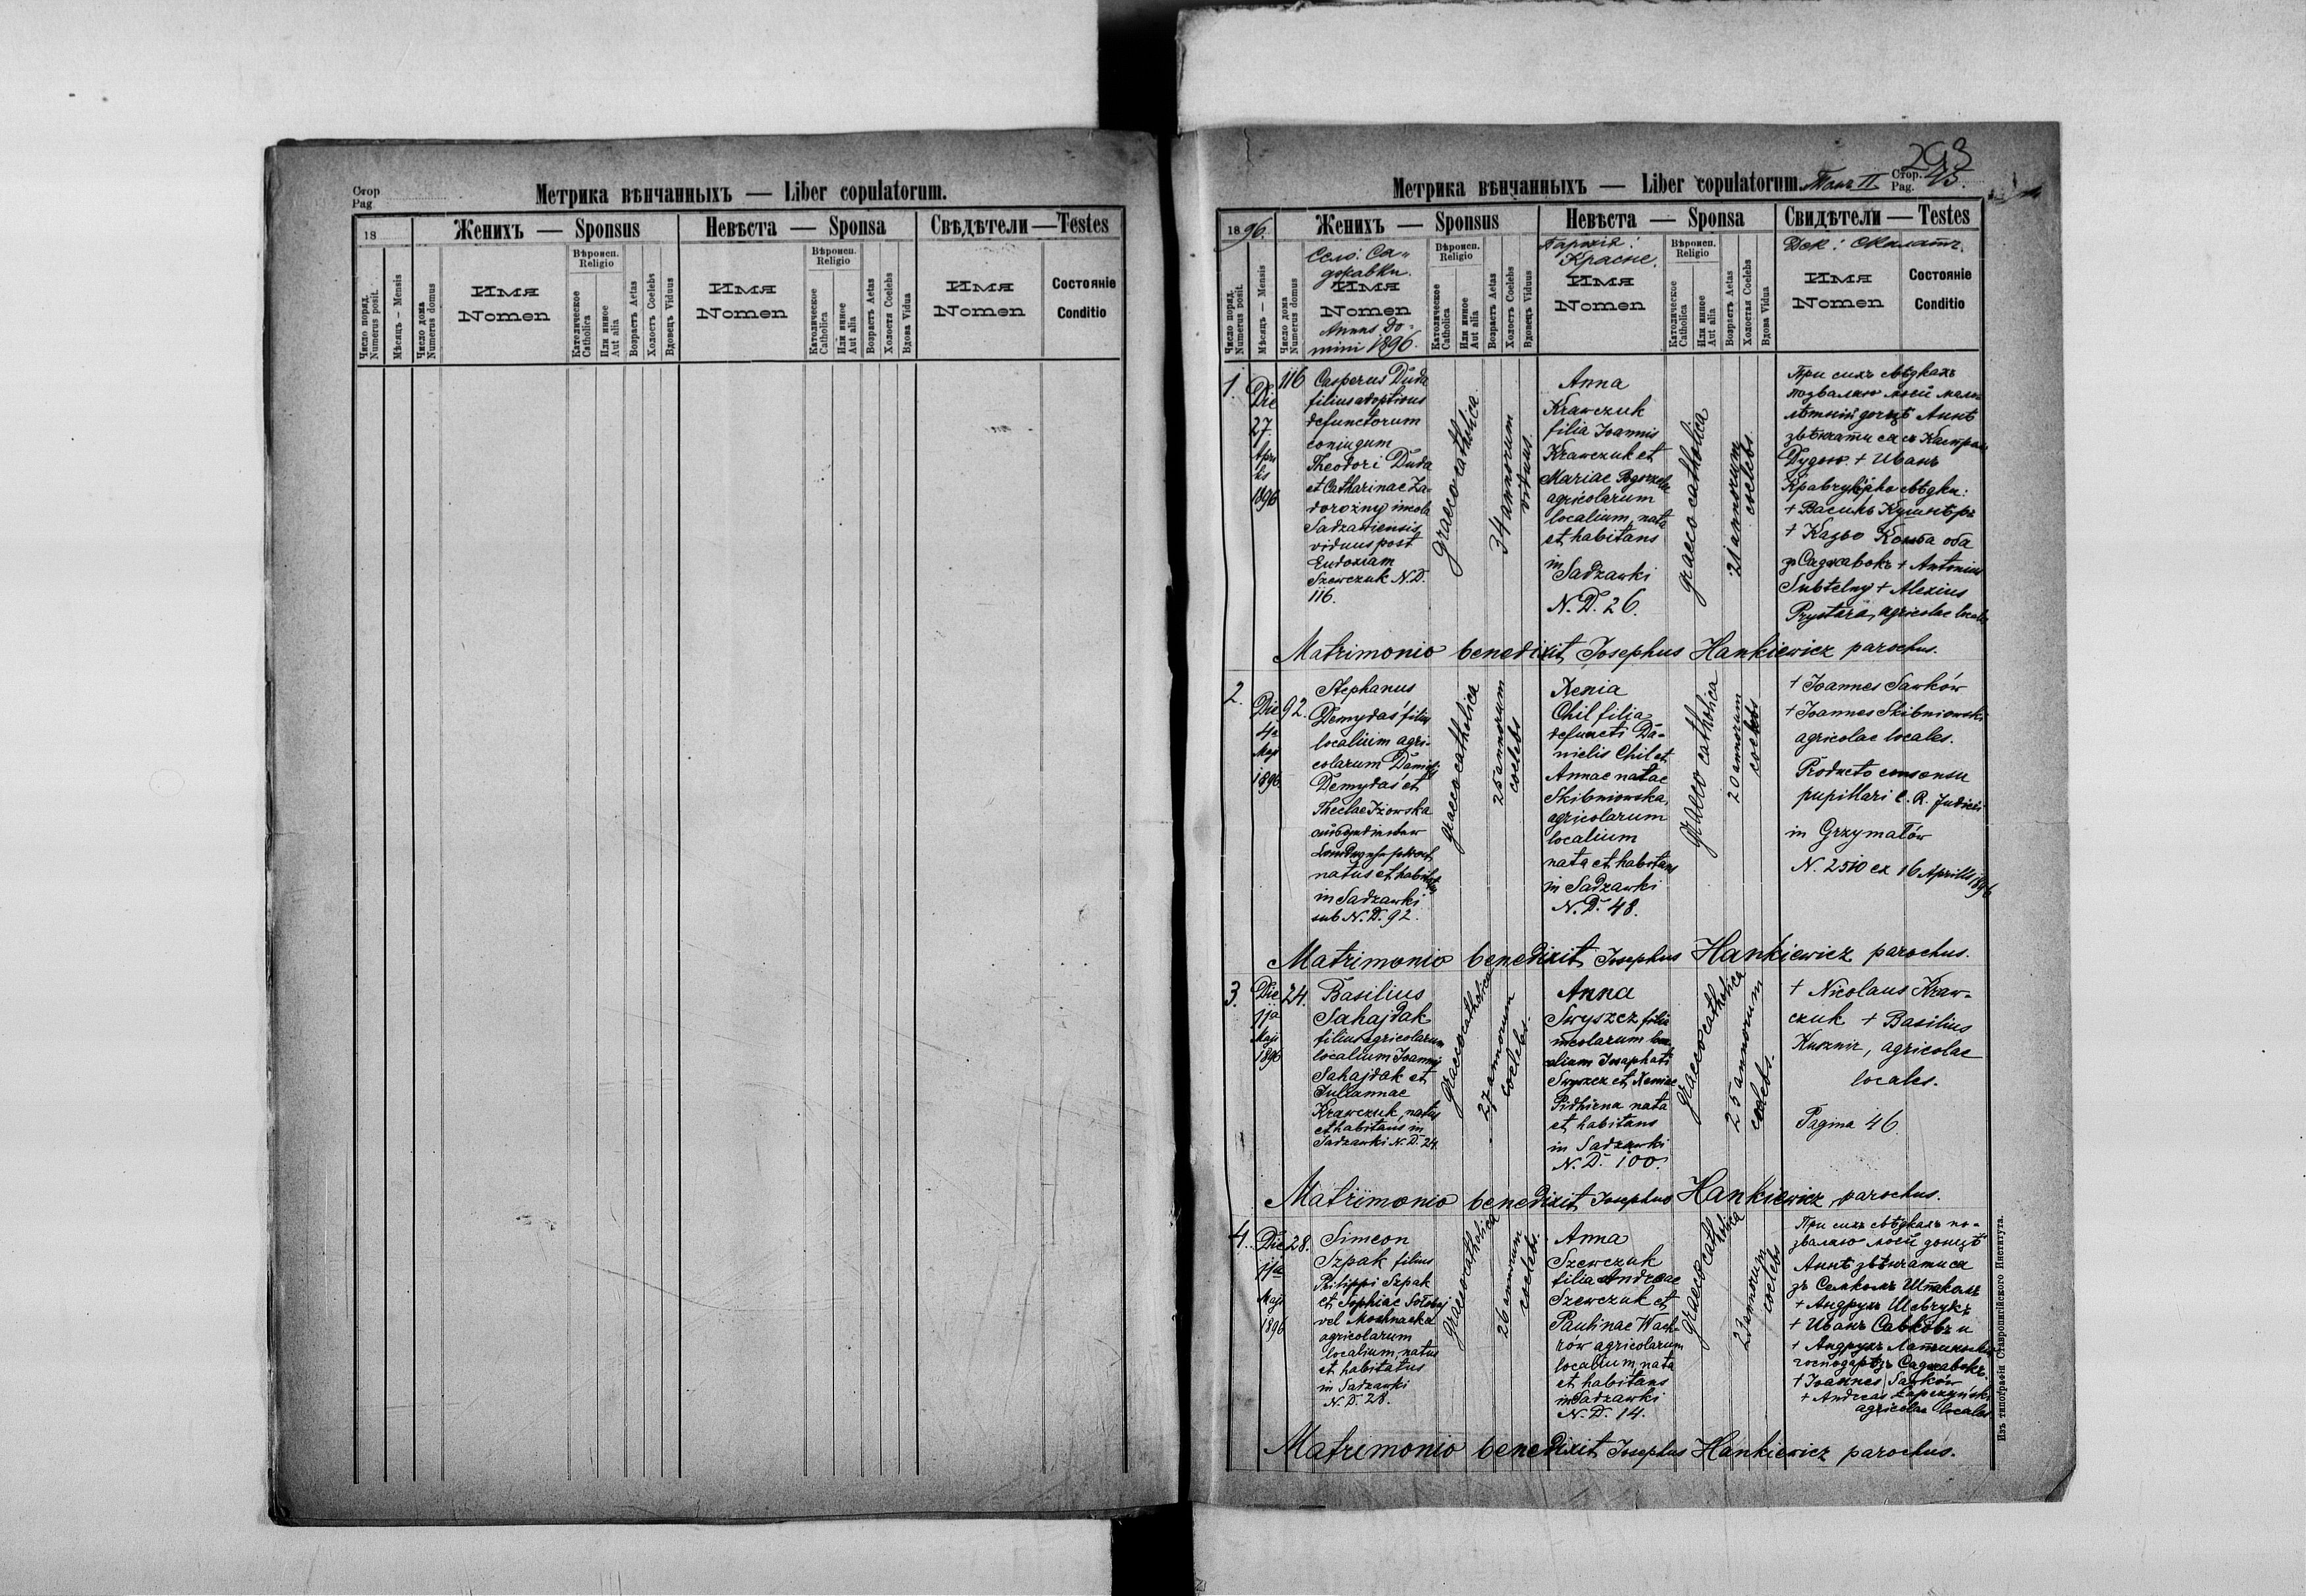 Стор
Pag
Метрика вѣнчанныхъ — Liber copulatorum.
18
Женихъ — Sponsus
Невѣста — Sponsa
Свѣдѣтели — Testes
Число поряд.
Numerus posit.
Мѣсяцъ — Mensis
Число дома
Numerus domus
Имя
Nomen
Вѣроисп.
Religio
Католическое
Catholica
Или инное
Aut alia
Возрастъ Aetas
Холостъ Coelebs
Вдовецъ Viduus
Имя
Nomen
Вѣроисп.
Religio
Католическое
Catholica
Или инное
Aut alia
Возрастъ Aetas
Холостя Coelebs
Вдова Vidua
Имя
Nomen
Состояніе
Conditio
293
Метрика вѣнчанныхъ — Liber copulatorum. Томъ II Стор. Pag. 45.
1896.
Женихъ — Sponsus
Невѣста — Sponsa
Свидѣтели — Testes
Число поряд.
Numerus posit.
Мѣсяцъ — Mensis
Число дома
Numerus domus
Село: Са-
джавки.
Имя
Nomen
Annus Do-
mini 1896.
Вѣроисп.
Religio
Католическое
Catholica
Или инное
Aut alia
Возрастъ Aetas
Холостъ Coelebs
Вдовецъ Viduus
Парохія:
Красне.
Имя
Nomen
Вѣроисп.
Religio
Католическое
Catholica
Или инное
Aut alia
Возрастъ Aetas
Холостая Coelebs
Вдова Vidua
Дек: Скалатъ.
Имя
Nomen
Состояніе
Conditio
1.
Die
27
Apri
lis
1896
116
Casperus Duda
filius adoptivus
defunctorum
coniugum
Theodori Duda
et Catharinae Za-
dorożny incola
Sadzaviensis
viduus post
Eudoxiam
Szewczuk N.D.
116.
graeco catholica
34 annorum
viduus.
Anna
Krawczuk
filia Joannis
Krawczuk et
Mariae
agricolarum
localium, nata
et habitans
in Sadzawki
N. D. 26.
graeco catholica
21 annorum
coelebs
При сихъ свѣдкахъ
позваляю моей мало-
лѣтній донцѣ Аннѣ
звѣнчати ся съ Каспром
Дудою. + Иванъ
Кравчукъ свѣдки:
+ Василь Кушнѣръ
+ Казьо Комба оба
зъ Саджавокъ + Antonius
Subtelny + Alexius
Przystara, agricolae locales
Matrimonio benedixit Josephus Hankiewicz parochus.
2.
Die
4a
Maji
1896.
92.
Stephanus
Demydaś filius
localium agri-
colarum Danieli
Demydaś et
Theclae Iżowska
natus et habitans
in Sadzawki
sub N. D. 92.
graeco catholica
25 annorum
coelebs
Xenia
Chil filia
defuncti Da-
nielis Chil et
Annae natae
Skibniowska,
agricolarum
localium
nata et habitans
in Sadzawki
N. D. 48.
graeco catholica
20 annorum
coelebs
+ Joannes Sawków
+ Joannes Skibniowski
agricolae locales.
Producto consensu
pupillari C. R. Judicii
in Grzymałów
N. 2510 ex 16 Aprilis 1896
Matrimonio benedixit Josephus Hankiewicz parochus.
3.
Die
11a
Maji
1896
24.
Basilius
Sahajdak
filius agricolarum
localium Joannis
Sahajdak et
Juliannae
Krawczuk, natus
et habitans in
Sadzawki N. D. 24.
graeco catholica
27 annorum
coelebs.
Anna
Swyszcz filia
incolarum lo-
calium Josaphati
Swyszcz et Xeniae
Pidhirna nata
et habitans
in Sadzawki
N. D. 100.
graeco catholica
25 annorum
coelebs.
+ Nicolaus Kraw-
czuk + Basilius
Kusznir, agricolae
locales.
Pagina 46
Matrimonio benedixit Josephus Hankiewicz, parochus.
4.
Die
11a
Maji
1896
28.
Simeon
Szpak filius
Philippi Szpak
et Sophiae Sołowij
vel Mochnacka
agricolarum
localium, natus
et habitatus
in Sadzawki
N. D. 28.
graeco catholica
26 annorum
coelebs.
Anna
Szewczuk
filia Andreae
Szewczuk et
Paulinae Wach-
rów agricolarum
localium, nata
et habitans
in Sadzawki
N. D. 14.
graeco catholica
23 annorum
coelebs
При сихъ свѣдкахъ по-
зваляю моей донцѣ
Аннѣ звѣнчатися
зъ Семкомъ Шпакомъ
+ Андрухъ Шевчукъ
+ Иванъ Савковъ и
+ Андрухъ
господарѣ зъ Саджавокъ.
+ Joannes Sawków
+ Andreas Łapczyński
agricolae locales
Matrimonio benedixit Josephus Hankiewicz parochus.
Изъ типографіи Ставропигійского Института.